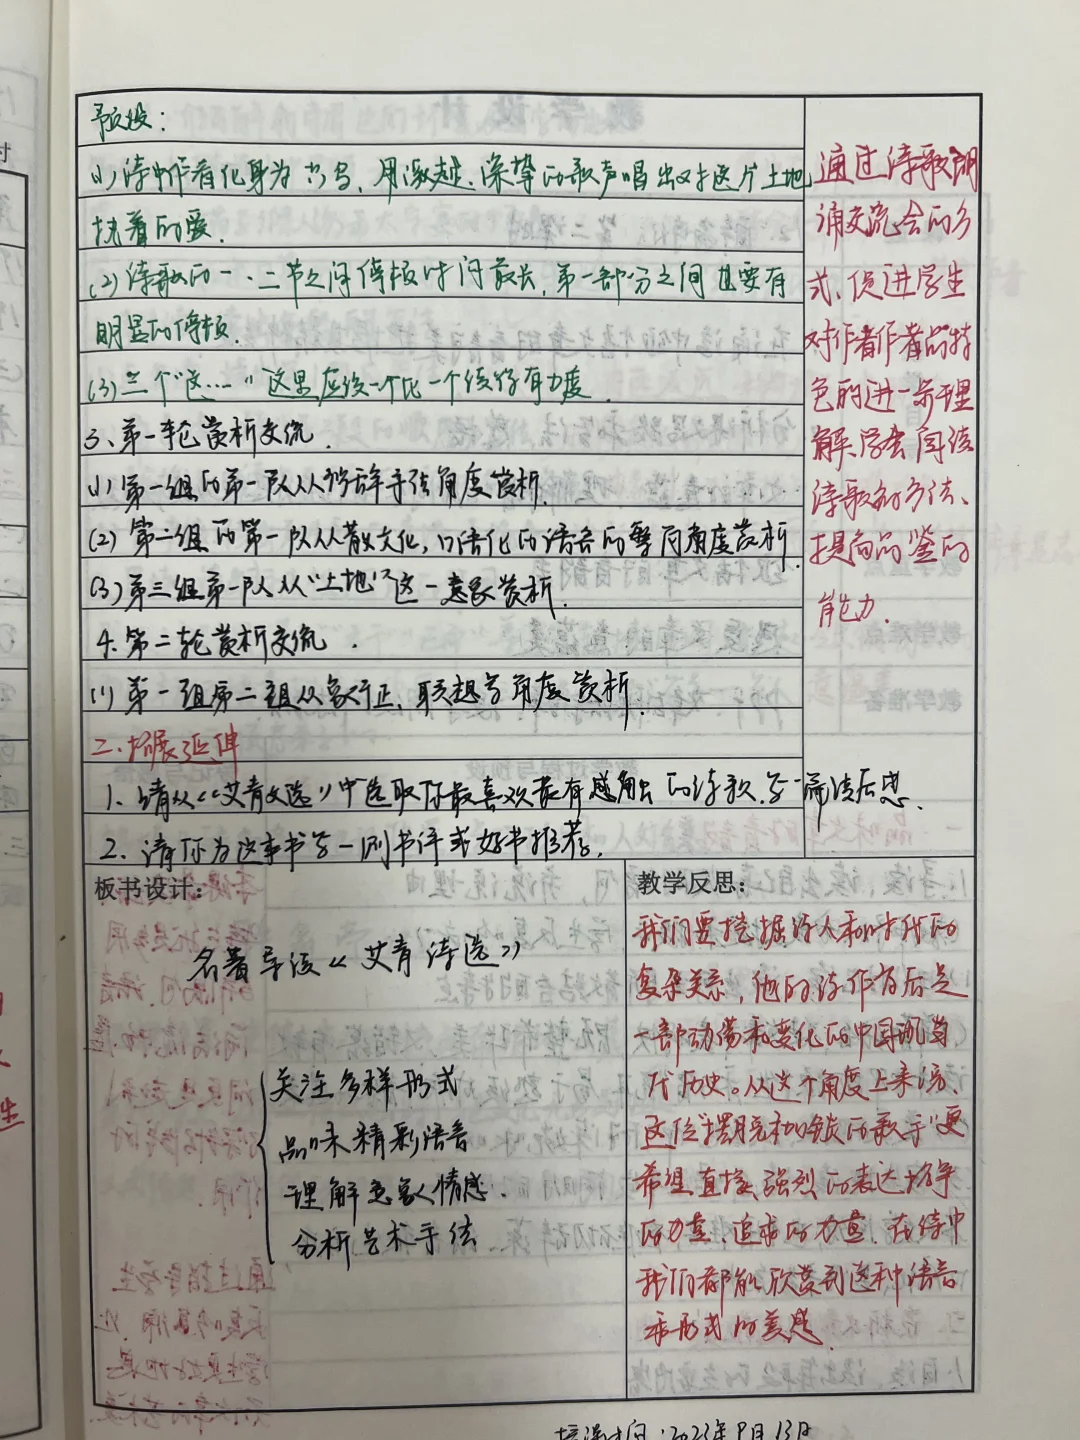 预设：
(1)诗中作者化身为鸟，用激越、深挚的歌声唱出对这片土地
执着的爱.
(2)诗歌的一、二节之间停顿时间最长，第一部分之间也要有
明显的停顿.
(3)三个“这……”这里应该一个比一个读得有力度.
3、第一轮赏析交流.
(1)第一组的第一队从修辞手法角度赏析.
(2)第二组的第一队从散文化，口语化的语言的角度赏析
(3)第三组第一队从“土地”这一意象赏析.
4.第二轮赏析交流.
(1)第一组第二组从象征，联想等角度赏析.
二.拓展延伸
1.请从《艾青文选》中选取你最喜欢最有感触的诗歌.写一篇读后感.
2.请你为这本书写一则书评或好书推荐.
通过诗歌朗
诵交流会的方
式、促进学生
对作者作者的特
色的进一步理
解.学会阅读
诗歌的方法、
提高品鉴的
能力.
板书设计：
名著导读《艾青诗选》
关注多样形式
品味精彩语言
理解意象情感.
分析艺术手法
教学反思：
我们要挖掘诗人和时代的
复杂关系，他的诗作背后是
一部动荡和变化的中国现当
代历史。从这个角度上来说、
这位“摆脱枷锁的歌手”更
希望直接、强烈的表达抗争
的力量、追求的力量.在诗中
我们都能欣赏到这种语言
和形式的美感.
2023年9月13日